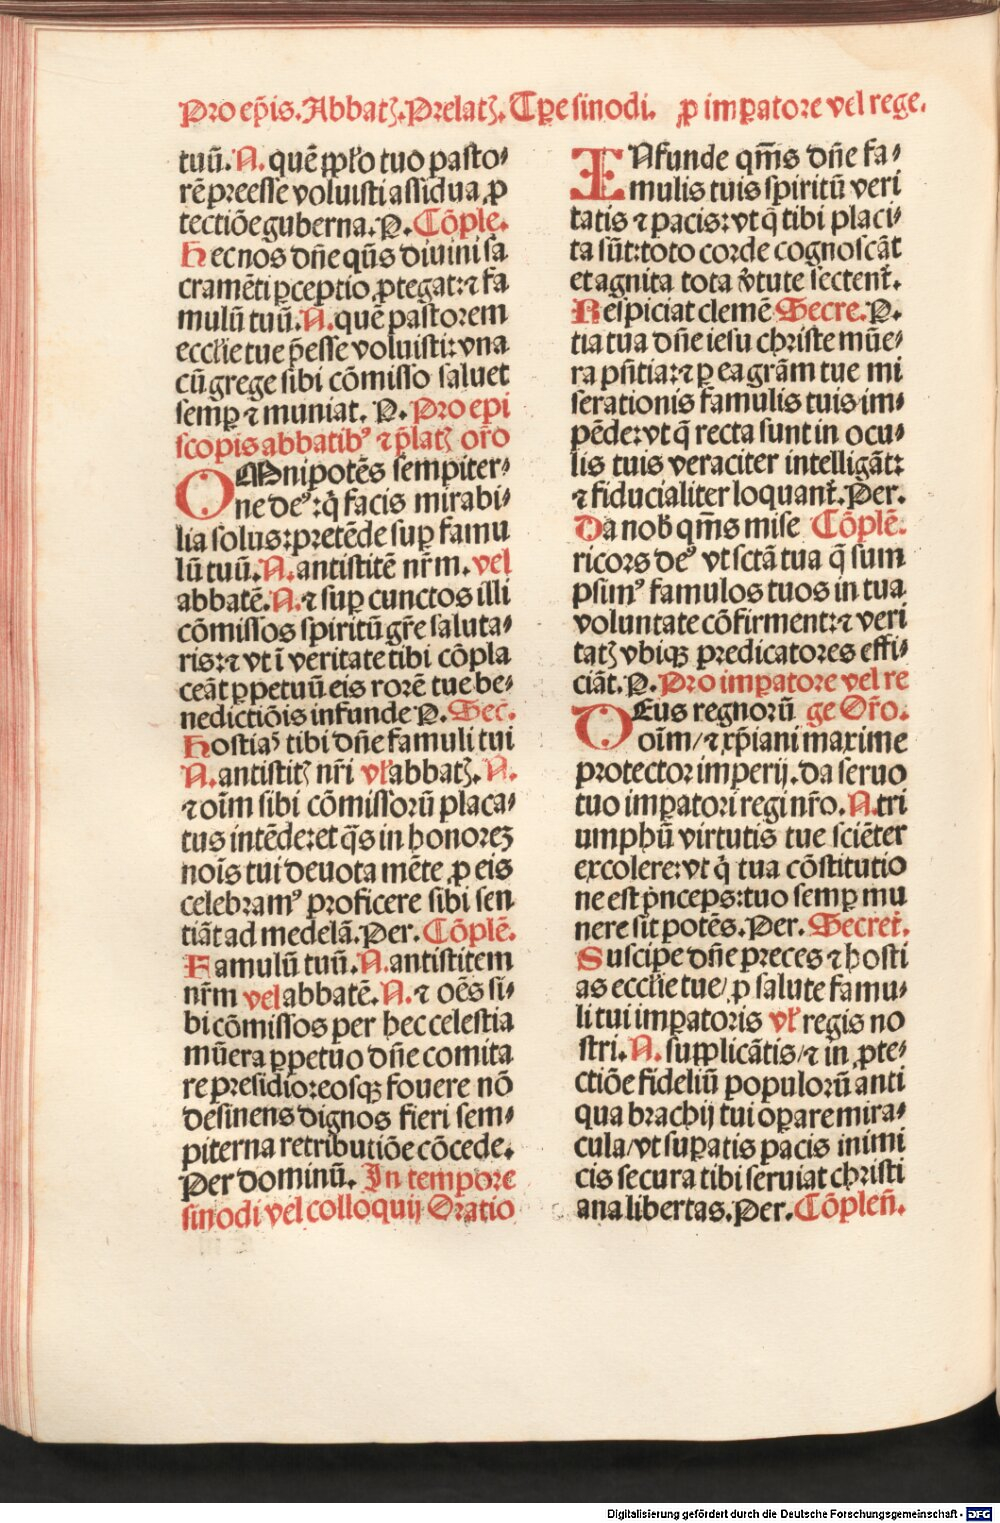 Pro ep̃is. Abbatꝫ. Prelatꝫ. Tp̱e sinodi. ꝓ imp̱atore vel rege.
tuũ. N. quẽ pp̱ło tuo pasto⸗
rẽ preesse voluisti assidua ꝓ
tectiõe guberna. P. Cõple.
Hec nos dñe qũs diuini sa
cramẽti p̱ceptio ꝓtegat: ⁊ fa
mulũ tuũ. N. quẽ pastorem
eccłie tue p̃esse voluisti: vna
cũ grege sibi cõmisso saluet
semp̱ ⁊ muniat. P. Pro epi
scopis abbatibꝰ ⁊ p̃latꝫ oŕo
OMnipotẽs sempiter⸗
ne deꝰ: q̇ facis mirabi⸗
lia solus: pretẽde sup̱ famu
lũ tuũ. N. antistitẽ nŕm. vel
abbatẽ. N. ⁊ sup̱ cunctos illi
cõmissos spiritũ gŕe saluta⸗
ris: ⁊ vt ĩ veritate tibi cõpla
ceãt p̱petuũ eis rorẽ tue be⸗
nedictiõis infunde P. Sec̃.
Hostiaꝰ tibi dñe famuli tui
N. antistitꝫ nŕi vł abbatꝫ. N.
⁊ oĩm sibi cõmissorũ placa⸗
tus intẽde: et q̃s in honorez
noĩs tui deuota mẽte ꝓ eis
celebramꝰ proficere sibi sen
tiãt ad medelã. Per. Cõplẽ.
Famulũ tuũ. N. antistitem
nŕm vel abbatẽ. N. ⁊ oẽs si⸗
bi cõmissos per hec celestia
mũera p̱petuo dñe comita
re presidio: eosqꝫ fouere nõ
desinens dignos fieri sem⸗
piterna retributiõe cõcede.
Per dominũ. In tempore
sinodi vel colloquij Oratio
INfunde qm̃s dñe fa⸗
mulis tuis spiritũ veri
tatis ⁊ pacis: vt q̃ tibi placi⸗
ta sũt: toto corde cognoscãt
et agnita tota v̇tute sectent̃.
Respiciat clemẽ Secre. P.
tia tua dñe iesu christe mũe⸗
ra p̃ntia: ⁊ p̱ ea grãm tue mi
serationis famulis tuis im⸗
pẽde: vt q̃ recta sunt in ocu⸗
lis tuis veraciter intelligãt:
⁊ fiducialiter loquant̃. Per.
Da nob̃ qm̃s mise Cõplẽ.
ricors deꝰ vt sctã tua q̃ sum
psimꝰ famulos tuos in tua
voluntate cõfirment: ⁊ veri
tatꝫ vbiqꝫ predicatores effi⸗
ciãt. P. Pro imp̱atore vel re
DEus regnorũ ge Oŕo.
oĩm/ ⁊ xp̃iani maxime
protector imperij. da seruo
tuo imp̱atori regi nŕo. N. tri
umphũ virtutis tue sciẽter
excolere: vt q̇ tua cõstitutio
ne est ṗnceps: tuo semp̱ mu
nere sit potẽs. Per. Secret̃.
Suscipe dñe preces ⁊ hosti
as eccłie tue/ ꝓ salute famu⸗
li tui imp̱atoris vł regis no
stri. N. supplicãtis/ ⁊ in ꝓte⸗
ctiõe fideliũ populorũ anti
qua brachij tui op̱are mira⸗
cula/ vt sup̱atis pacis inimi
cis secura tibi seruiat christi
ana libertas. Per. Cõpleñ.
Digitalisierung gefördert durch die Deutsche Forschungsgemeinschaft - DFG